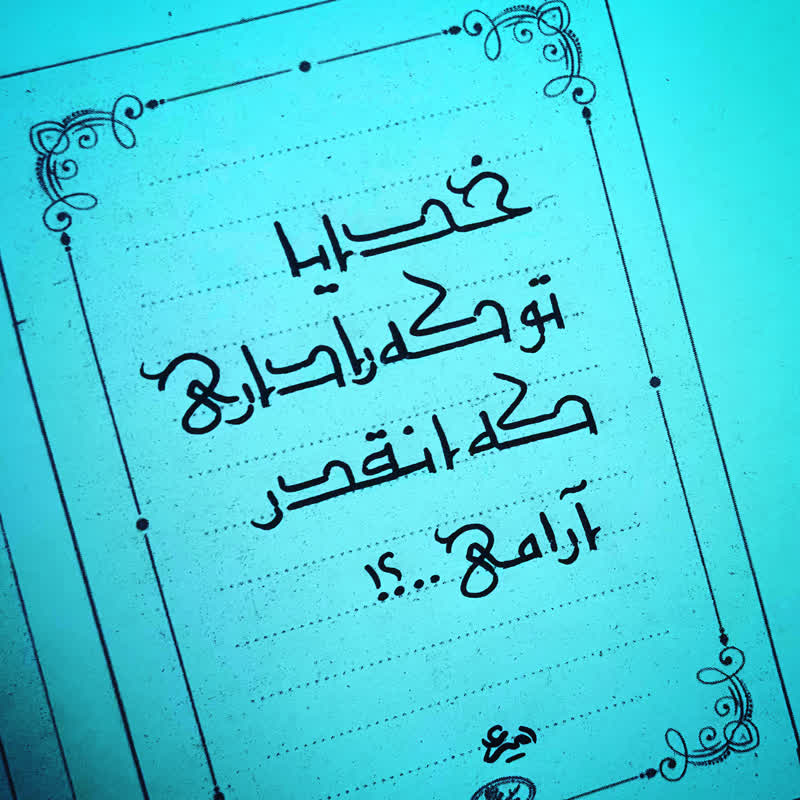 خدایا
تو که را داری
که انقدر
آرامی ..؟!